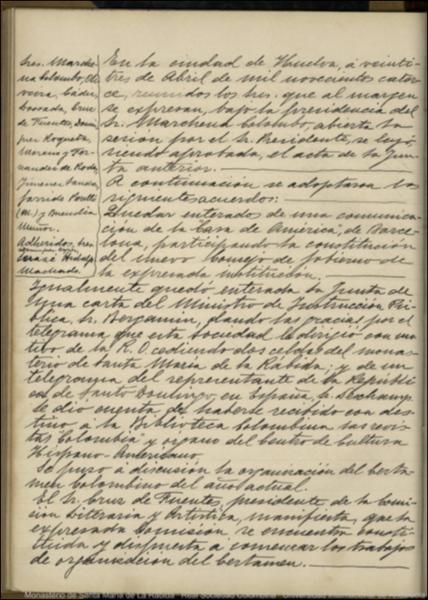 Sres. Marche-
na Colombo, Oli-
veira, Cádiz
Serrano, Cruz
de Fuentes, Domín-
guez Roqueta,
Moreno y Fer-
nández de Roda,
Jimenez, Sanda,
Garrido Perelló
(M.) y Buendía
Muñoz.
Adheridos, Sres.
Hidalgo
Machado.
En la ciudad de Huelva, á veinti-
tres de Abril de mil novecientos cator-
ce, reunidos los Sres. que al margen
se expresan, bajo la presidencia del
Sr. Marchena Colombo, abierta la
sesión por el Sr. Presidente, se leyó,
siendo aprobada, el acta de la Jun-
ta anterior.
A continuación se adoptaron los
siguientes acuerdos:
Quedar enterados de una comunica-
ción de la "Casa de América", de Barce-
lona, participando la constitución
del nuevo Consejo de gobierno de
la expresada institución.
Igualmente quedó enterada la Junta de
una carta del Ministro de Instrucción Pú-
blica, Sr. Bergamin, dando las gracias por el
telegrama que esta Sociedad le dirigió con mo-
tivo de la R. O. cediendo dos celdas del monas-
terio de Santa María de la Rábida; y de un
telegrama del representante de la Repúbli-
ca de Santo Domingo, en España, Sr. Deschamps.
Se dio cuenta de haberse recibido con des-
tino á la Biblioteca Colombina las revis-
tas Colombia y órgano del Centro de Cultura
Hispano-Americano.
Se puso á discusión la organización del certa-
men Colombino del año actual.
El Sr. Cruz de Fuentes, presidente de la Comi-
sión Literaria y Artística, manifiesta, que la
expresada Comisión se encuentra consti-
tuida y dispuesta a comenzar los trabajos
de organización del certamen.